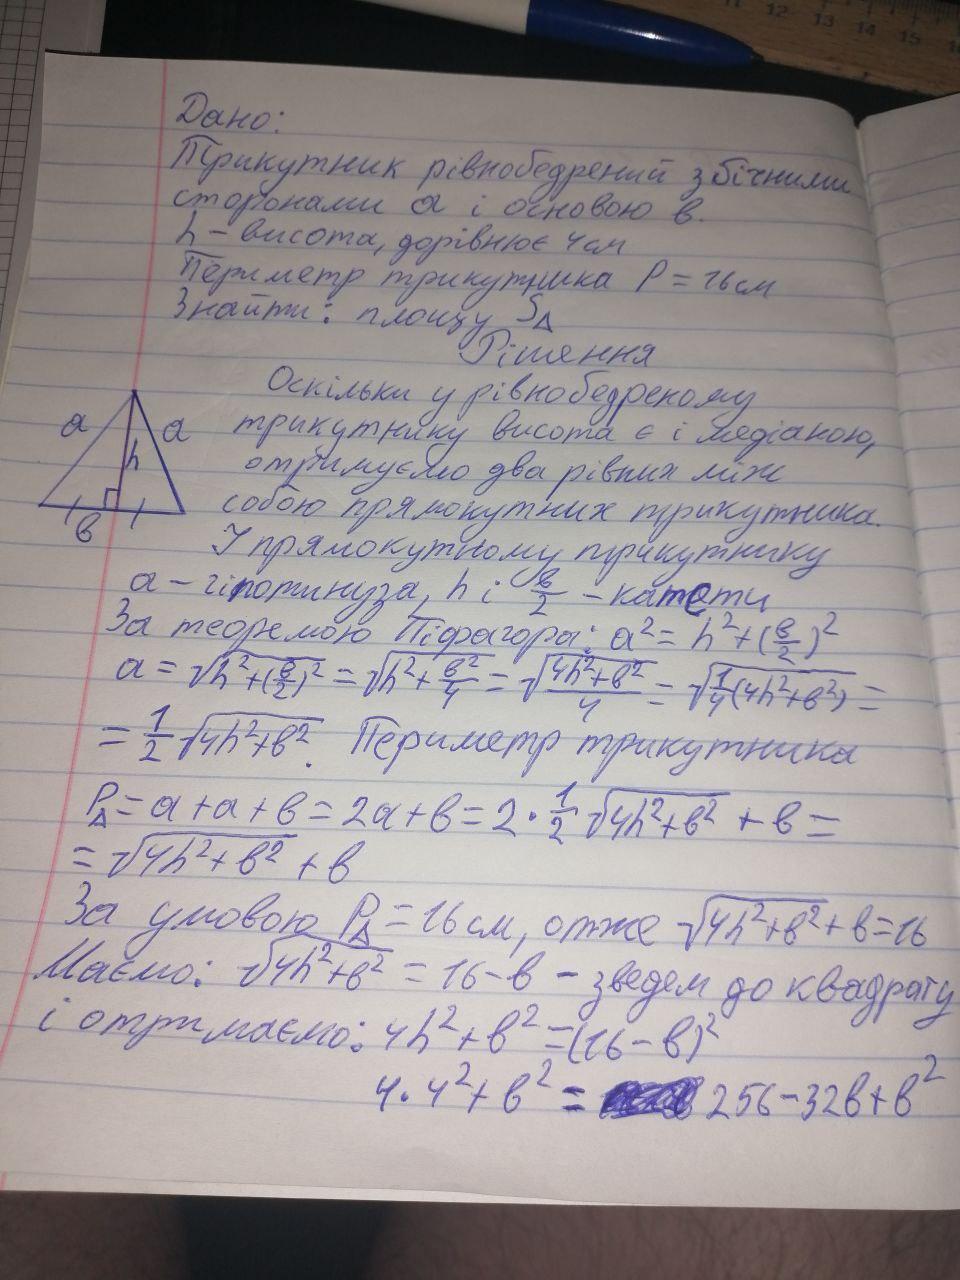 11 12 13 14 15
Дано:
Трикутник рівнобедрений з бічними
сторонами a і основою в.
h – висота, дорівнює 4 см
Периметр трикутника P = 16 см
Знайти: площу S△
Рішення
Оскільки у рівнобедреному
трикутнику висота є і медіаною,
отримуємо два рівних між
собою прямокутних трикутника.
a a
h
в
У прямокутному трикутнику
a – гіпотинуза, h і в/2 – катети
За теоремою Піфагора: a² = h² + (в/2)²
a = √(h² + (в/2)²) = √(h² + в²/4) = √((4h² + в²)/4) = √(1/4(4h² + в²)) =
= 1/2 √(4h² + в²). Периметр трикутника
P△ = a + a + в = 2a + в = 2 · 1/2 √(4h² + в²) + в =
= √(4h² + в²) + в
За умовою P△ = 16 см, отже √(4h² + в²) + в = 16
Маємо: √(4h² + в²) = 16 – в – зведем до квадрату
і отримаємо: 4h² + в² = (16 – в)²
4 · 4² + в² = 256 – 32в + в²